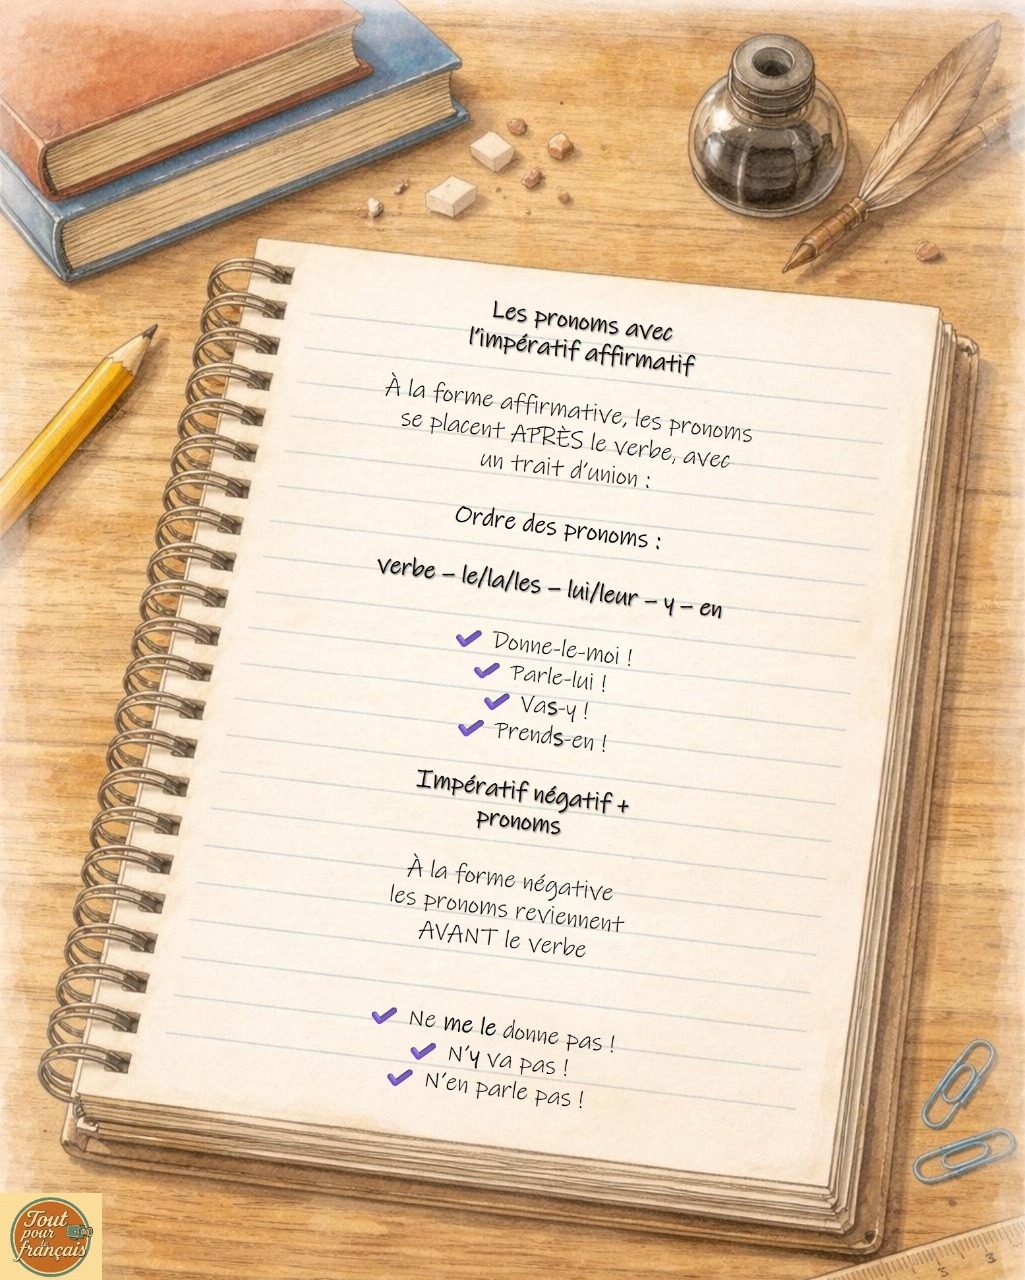 Les pronoms avec
l'impératif affirmatif
À la forme affirmative, les pronoms
se placent APRÈS le verbe, avec
un trait d'union :
Ordre des pronoms :
verbe – le/la/les – lui/leur – y – en
Donne-le-moi !
Parle-lui !
Vas-y !
Prends-en !
Impératif négatif +
pronoms
À la forme négative
les pronoms reviennent
AVANT le verbe
Ne me le donne pas !
N'y va pas !
N'en parle pas !
Tout
pour
le
français
3
5